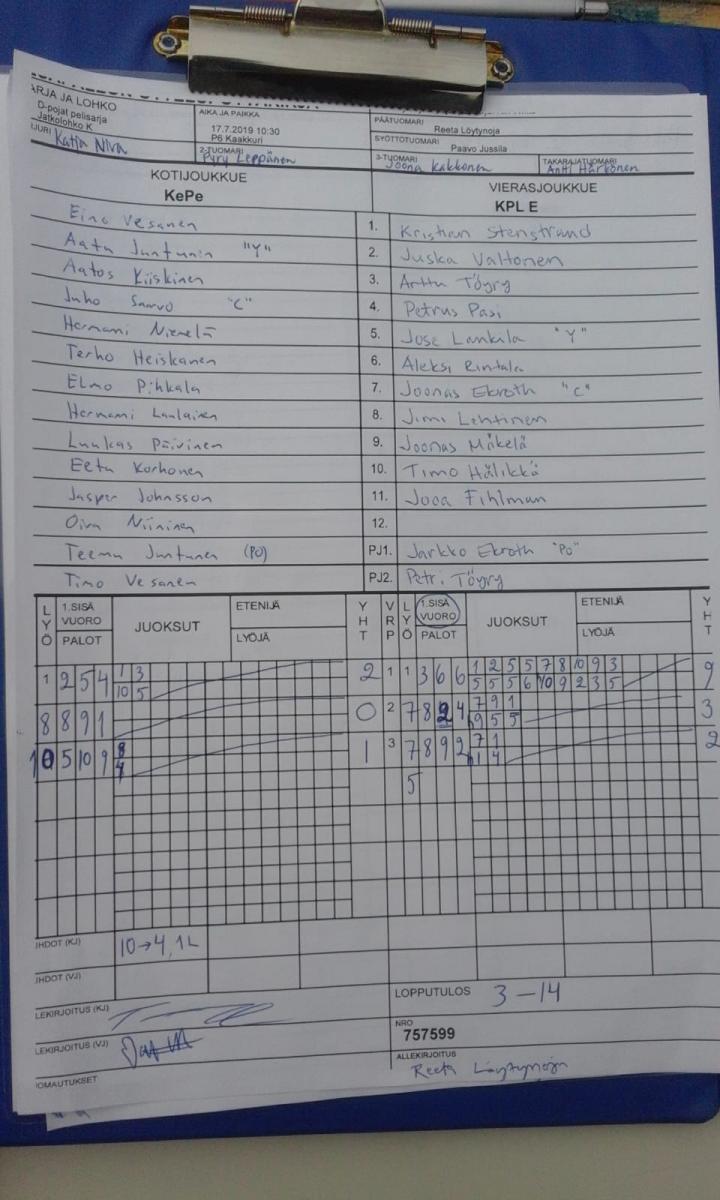 ARJA JA LOHKO
D-pojat pelisarja
Jatkolohko K
AIKA JA PAIKKA
17.7.2019 10:30
P6 Kaakkuri
PÄÄTUOMARI
Reeta Löytynoja
SYÖTTÖTUOMARI
Paavo Jussila
Katja Niva
2-TUOMARI
Pyry Leppänen
3-TUOMARI
Joona Kakkonen
TAKARAJATUOMARI
Antti Härkönen
KOTIJOUKKUE VIERASJOUKKUE
KePe KPL E
Eino Vesanen 1. Kristian Stenstrand
Aatu Juntunen "Y" 2. Juska Valtonen
Aatos Kiiskinen 3. Arttu Töyry
Juho Saavo "C" 4. Petrus Pasi
Hermanni Niemelä 5. Jose Lankila "Y"
Terho Heiskanen 6. Aleksi Rintala
Elmo Pihkala 7. Joonas Ekroth "C"
Hermanni Laulainen 8. Jimi Lehtinen
Luukas Päivinen 9. Joonas Mäkelä
Eetu Korhonen 10. Timo Hälikkä
Jasper Johnsson 11. Jooa Fihlman
Oiva Niininen 12.
Teemu Juntunen (PO) PJ1. Jarkko Ekroth "PO"
Timo Vesanen PJ2. Petri Töyry
LYÖ 1.SISÄ VUORO PALOT JUOKSUT ETENIJÄ LYÖJÄ YHT VRP LYÖ 1.SISÄ VUORO PALOT JUOKSUT ETENIJÄ LYÖJÄ YHT
1 2 5 4 1 3 2 1 1 3 6 6 1 2 5 5 7 8 10 9 3 9
10 5 5 5 5 6 10 9 2 3 5
8 8 9 1 0 2 7 8 2 4 7 9 1 3
9 5 5
10 5 10 9 8 1 3 7 8 9 2 7 1 2
4 1 4
5
HDOT (KJ) 10→4, 1L
HDOT (VJ)
LEKIRJOITUS (KJ)
LOPPUTULOS 3 – 14
LEKIRJOITUS (VJ)
NRO
757599
ALLEKIRJOITUS
Reeta Löytynoja
OMAUTUKSET